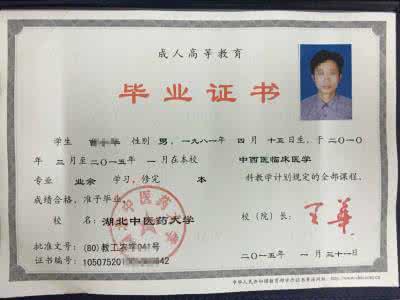 成人高等教育
毕业证书
学生 性别 男，一九八一年 四 月 十五日生，于二〇一〇
年 三月至二〇一五年 一月在本校 中西医临床医学
专业 业余 学习，修完 本 科教学计划规定的全部课程，
成绩合格，准予毕业。
校 名： 湖北中医药大学 校（院）长：
批准文号：(80)教工农字041号
证书编号：105075201 642 二〇一五年 一 月 三十一日